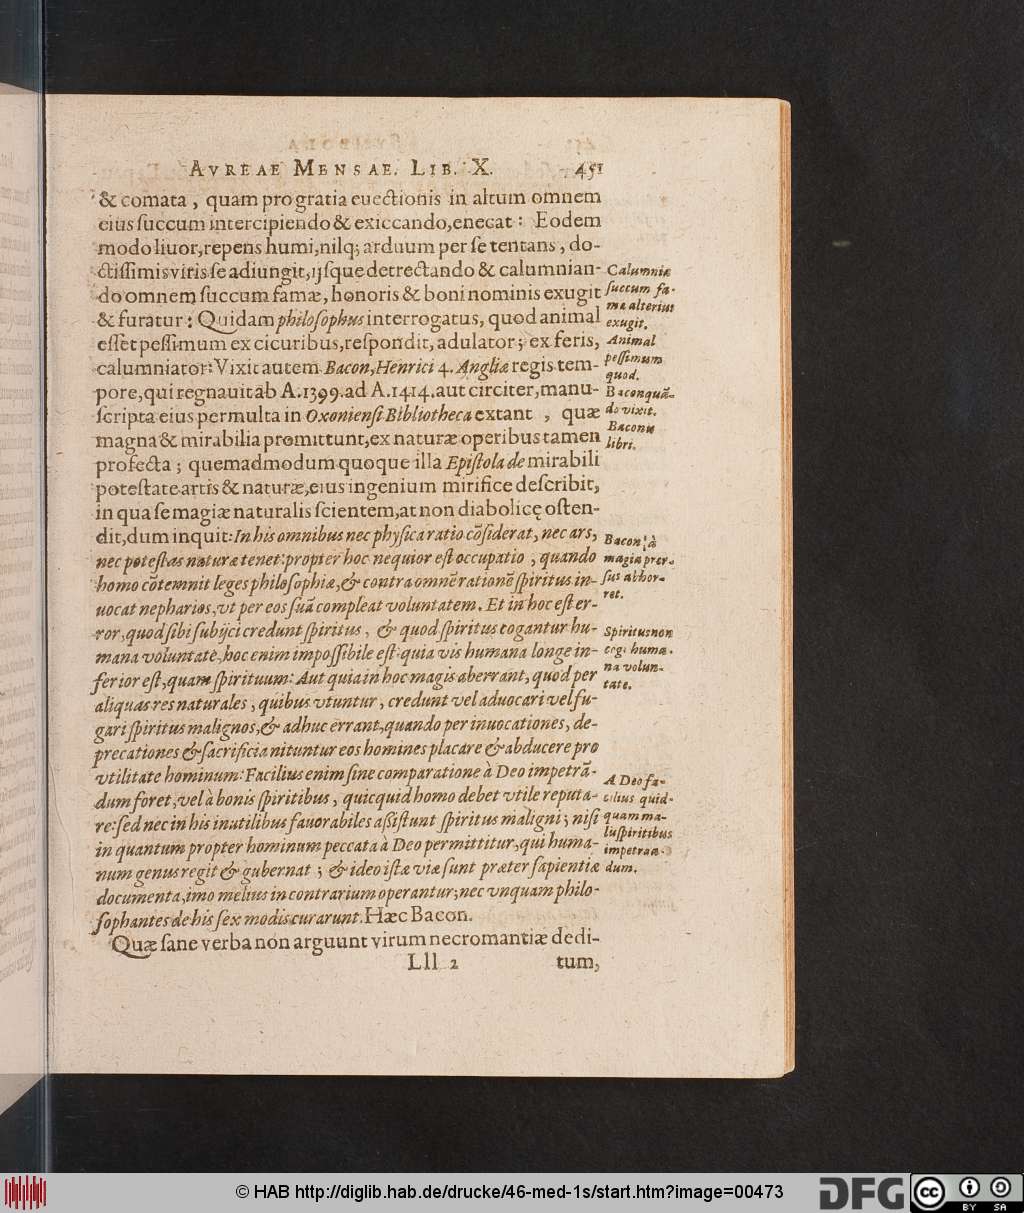 AVREAE MENSAE. LIB. X. 451
& comata, quam pro gratia euectionis in altum omnem
eius ſuccum intercipiendo & exiccando, enecat: Eodem
modo liuor, repens humi, nilq; arduum per ſe tentans, do-
ctiſſimis viris ſe adiungit, ijſque detrectando & calumnian-
do omnem ſuccum famæ, honoris & boni nominis exugit
& furatur: Quidam philoſophus interrogatus, quod animal
eſſet peſſimum ex cicuribus, reſpondit, adulator; ex feris,
calumniator: Vixit autem Bacon, Henrici 4. Angliæ regis tem-
pore, qui regnauit ab A. 1399. ad A. 1414. aut circiter, manu-
ſcripta eius permulta in Oxonienſi Bibliotheca extant, quæ
magna & mirabilia promittunt, ex naturæ operibus tamen
profecta; quemadmodum quoque illa Epiſtola de mirabili
poteſtate artis & naturæ, eius ingenium mirifice deſcribit,
in qua ſe magiæ naturalis ſcientem, at non diabolicę oſten-
dit, dum inquit: In his omnibus nec phyſica ratio cōſiderat, nec ars,
nec poteſtas naturæ tenet: propter hoc nequior eſt occupatio, quando
homo cōtemnit leges philoſophiæ, & contra omnē rationē ſpiritus in-
uocat nepharios, vt per eos ſuā compleat voluntatem. Et in hoc eſt er-
ror, quod ſibi ſubijci credunt ſpiritus, & quod ſpiritus cogantur hu-
mana voluntate, hoc enim impoſſibile eſt: quia vis humana longe in-
ferior eſt, quam ſpirituum: Aut quia in hoc magis aberrant, quod per
aliquas res naturales, quibus vtuntur, credunt vel aduocari vel fu-
gari ſpiritus malignos, & adhuc errant, quando per inuocationes, de-
precationes & ſacrificia nituntur eos homines placare & abducere pro
vtilitate hominum: Facilius enim ſine comparatione à Deo impetrā-
dum foret, vel à bonis ſpiritibus, quicquid homo debet vtile reputa-
re: ſed nec in his inutilibus fauorabiles aſſiſtunt ſpiritus maligni; niſi
in quantum propter hominum peccata à Deo permittitur, qui huma-
num genus regit & gubernat; & ideo iſtæ viæ ſunt præter ſapientiæ
documenta, imo melius in contrarium operantur; nec vnquam philo-
ſophantes de his ſex modis curarunt. Hæc Bacon.
Quæ ſane verba non arguunt virum necromantiæ dedi-
Lll 2 tum,
Calumniæ
ſuccum fa-
mæ alterius
exugit.
Animal
peſſimum
quod.
Bacon quā-
do vixit.
Baconis
libri.
Bacon à
magia pror-
ſus abhor-
ret.
Spiritus non
cogi huma-
na volun-
tate.
A Deo fa-
cilius quid-
quam ma-
lu ſpiritibus
impetran-
dum.
© HAB http://diglib.hab.de/drucke/46-med-1s/start.htm?image=00473
DFG
cc BY SA